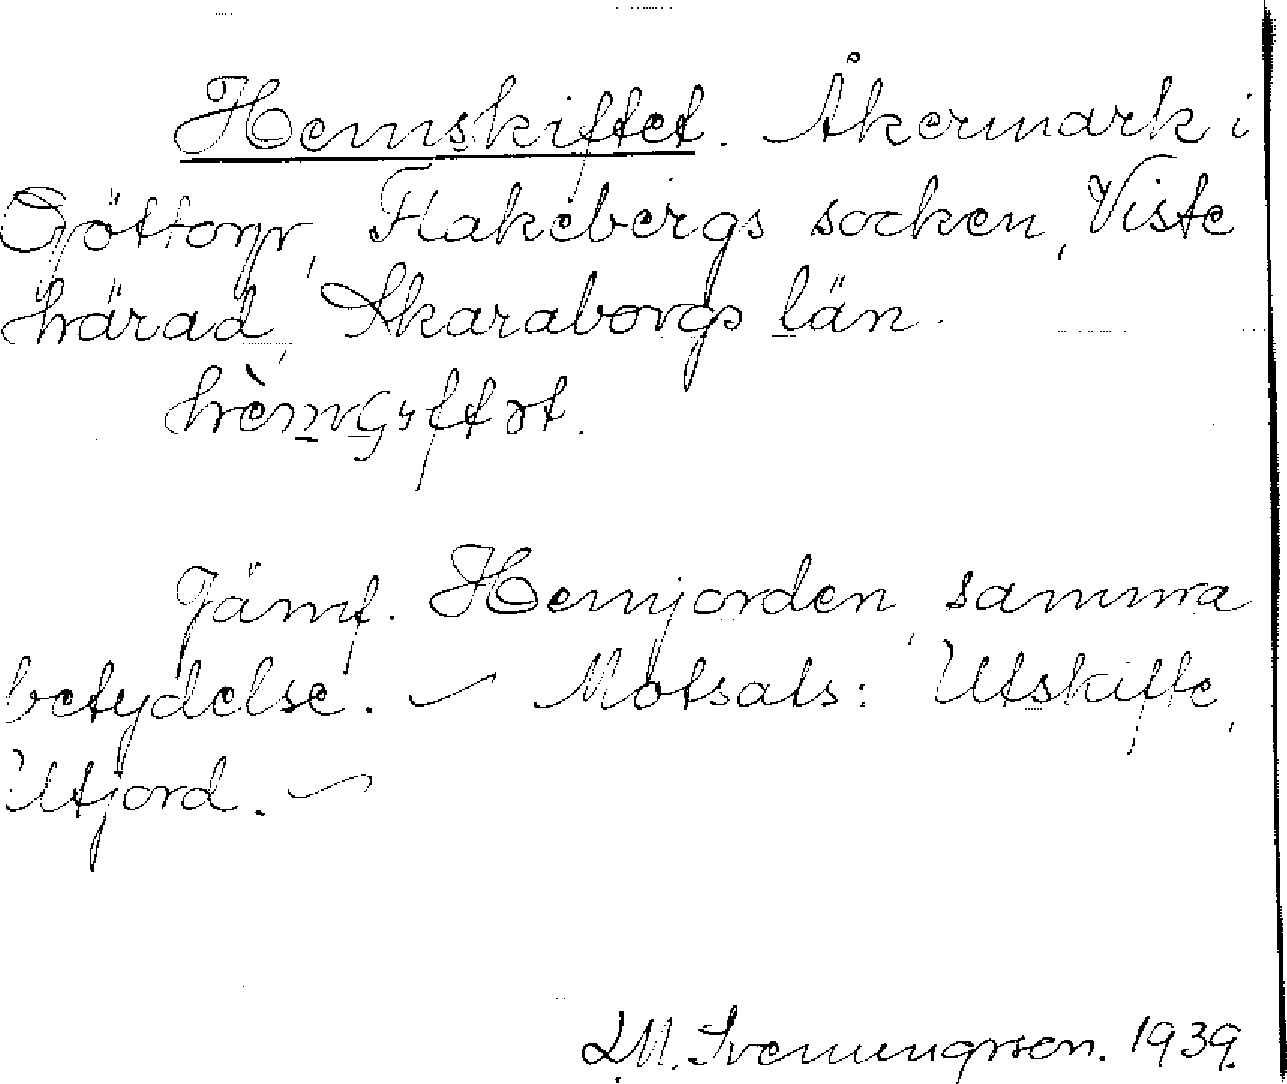 Hemskiftet. Åkermark i
Göttorp, Flakebergs socken, Viste
härad, Skaraborgs län.

Jämf. Hemjorden, samma
betydelse. — Motsats: Utskifte,
Utjord. —
L.M. Svenungsson. 1939.